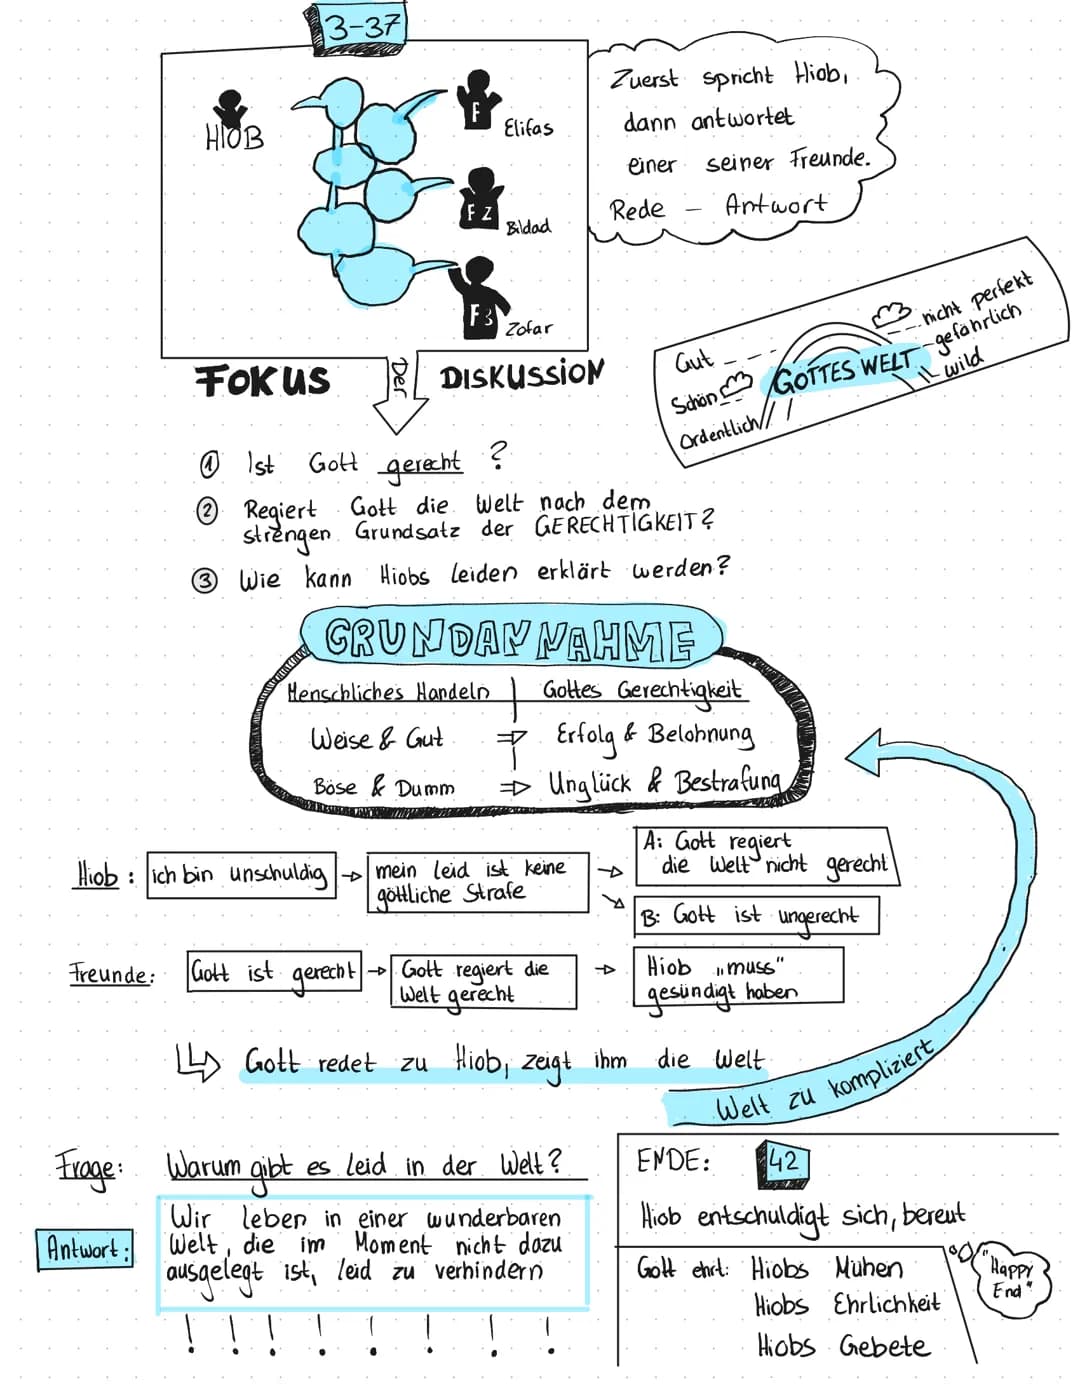 3-37
HIOB
F
Elifas
F Z
Bildad
F3
Zofar
Zuerst spricht Hiob,
dann antwortet
einer seiner Freunde.
Rede – Antwort
FOKUS Der DISKUSSION
Gut
Schön
Ordentlich
GOTTES WELT
nicht perfekt
gefährlich
wild
① Ist Gott gerecht ?
② Regiert Gott die Welt nach dem
strengen Grundsatz der GERECHTIGKEIT?
③ Wie kann Hiobs Leiden erklärt werden?
GRUNDANNAHME
Menschliches Handeln | Gottes Gerechtigkeit
Weise & Gut ⇒ Erfolg & Belohnung
Böse & Dumm ⇒ Unglück & Bestrafung
Hiob : ich bin unschuldig → mein Leid ist keine
göttliche Strafe
→ A: Gott regiert
die Welt nicht gerecht
B: Gott ist ungerecht
Freunde: Gott ist gerecht → Gott regiert die
Welt gerecht
→ Hiob „muss“
gesündigt haben
Gott redet zu Hiob, zeigt ihm die Welt
Welt zu kompliziert
Frage: Warum gibt es Leid in der Welt?
Antwort:
Wir leben in einer wunderbaren
Welt, die im Moment nicht dazu
ausgelegt ist, Leid zu verhindern
! ! ! ! ! ! ! !
ENDE: 42
Hiob entschuldigt sich, bereut
Gott ehrt: Hiobs Mühen
Hiobs Ehrlichkeit
Hiobs Gebete
"Happy
End"